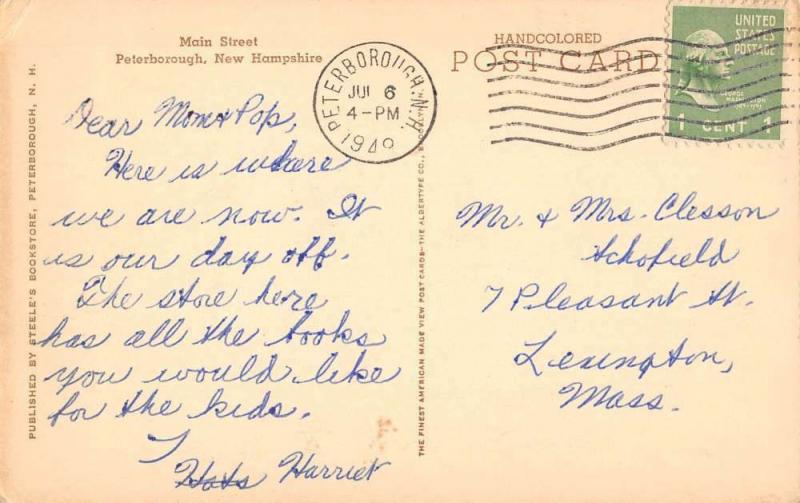 Main Street
Peterborough, New Hampshire
Dear Mom & Pop,
Here is where
we are now. It
is our day off.
The store here
has all the books
you would like
for the kids.
Harriet
PUBLISHED BY STEELE'S BOOKSTORE, PETERBOROUGH, N. H.
THE FINEST AMERICAN MADE VIEW POST CARDS—THE ALBERTYPE CO., BROOKLYN, N.
PETERBOROUGH, N.H.
JUL 6
4-PM
1949
HANDCOLORED
POST CARD
UNITED
STATES
POSTAGE
GEORGE
WASHINGTON
1 CENT 1
Mr. & Mrs. Clesson
Schofield
7 Pleasant St.
Lexington,
Mass.